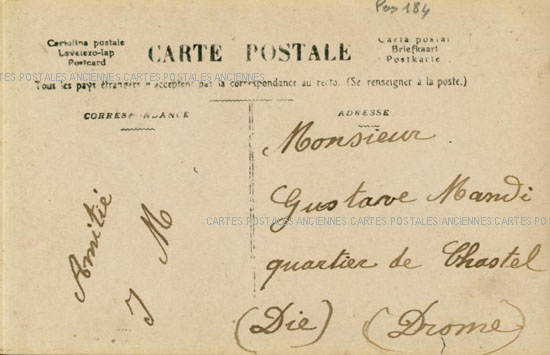 Pos 184
Cartolina postale
Levelezo-lap
Postcard
CARTE POSTALE
Carta postal
Briefkaart
Postkarte
CARTES POSTALES ANCIENNES CARTES POSTALES ANCIENNES CARTES POSTALES ANCIENNES CARTES POSTALES
Tous les pays étrangers n'acceptent pas la correspondance au recto. (Se renseigner à la poste.)
CORRESPONDANCE
Amitié
J M
ADRESSE
Monsieur
Gustave Mandi
CARTES POSTALES ANCIENNES CARTES POSTALES ANCIENNES
quartier de Chastel
(Die) (Drome)